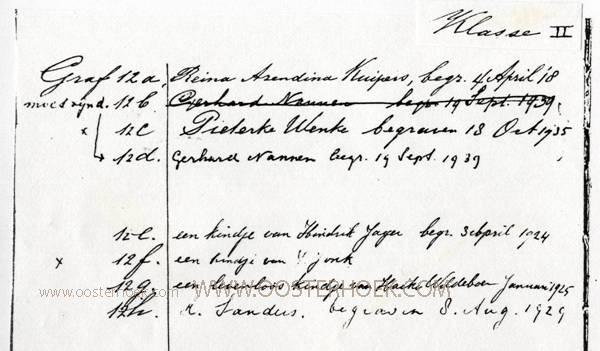 Klasse II
Graf 12a, Reina Arendina Kuipers, begr. 4 April '18
moet zijnd. 12b. Gerhard Nannen begr. 19 Sept. 1939
x 12c Pieterke Wenke begraven 18 Oct 1935
12d. Gerhard Nannen begr. 19 Sept. 1939
12e. een kindje van Hindrik Jager begr. 3 april 1924
x 12f. een kindje van Jonk
12g. een levenloos kindje van Haiko Wildeboer Januari 1925
www.oosterhoek.com WWW.OOSTERHOEK.COM www.oosterhoek.com
12h. K. Sanders. begraven 8. Aug. 1929